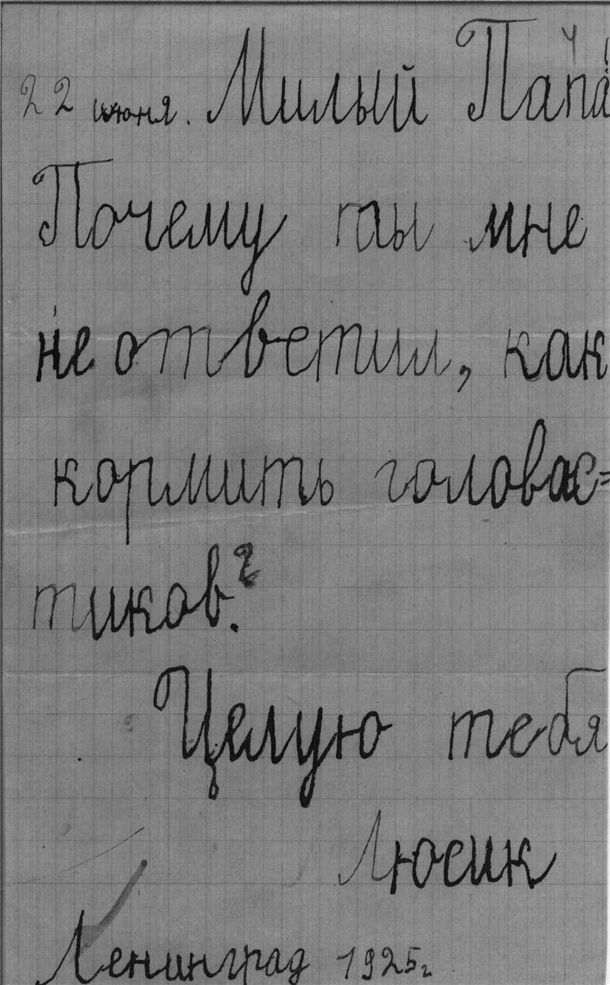 22 июня. Милый Папа!
Почему ты мне
не ответил, как
кормить головас=
тиков?
Целую тебя
Люсик
Ленинград 1925г.